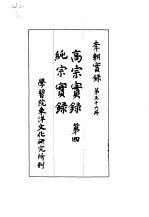 李朝實録 第五十六冊
高宗實錄 第四
純宗實錄
學習院東洋文化研究所刊